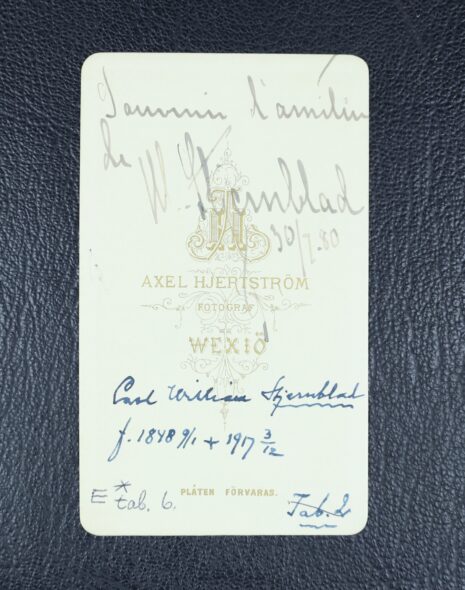 Souvenir d'amitié
de
W. Stjernblad
30/7.80
AH
AXEL HJERTSTRÖM
FOTOGRAF
WEXIÖ
Carl William Stjernblad
f. 1848 9/1 + 1917 3/12
E * tab. 6.
PLÅTEN FÖRVARAS.